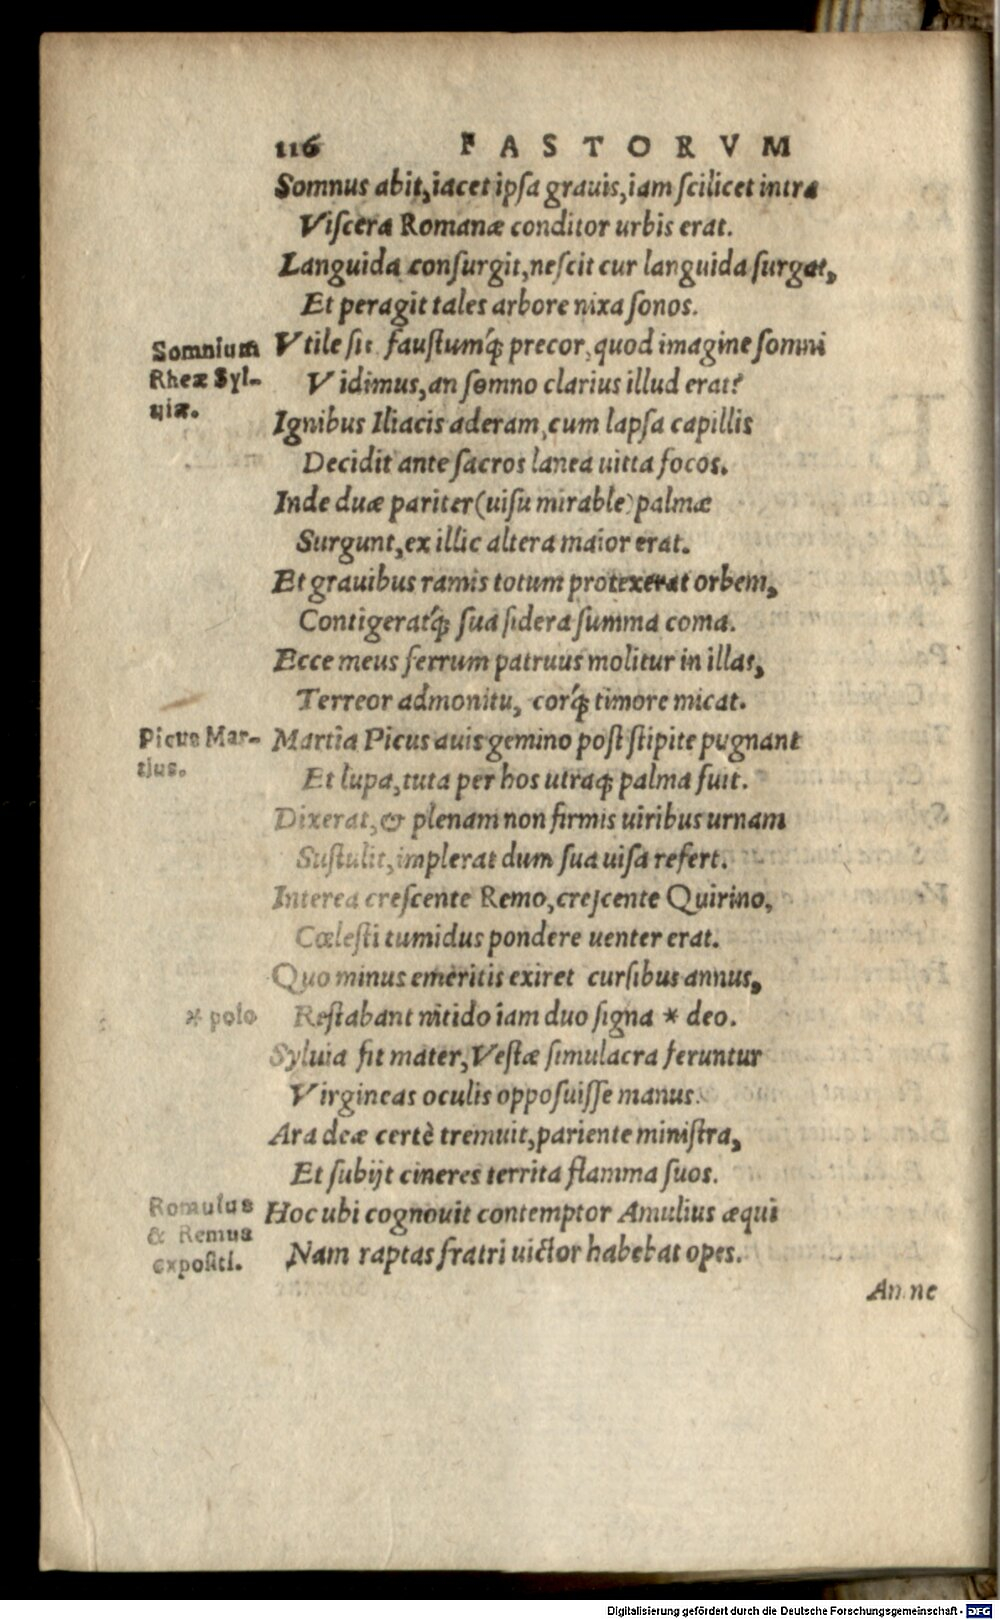 116 FASTORVM
Somnus abit, iacet ipsa grauis, iam scilicet intra
Viscera Romanæ conditor urbis erat.
Languida consurgit, nescit cur languida surgat,
Et peragit tales arbore nixa sonos.
Somnium
Rheæ Syl-
uiæ.
Vtile sit faustumq́; precor, quod imagine somni
Vidimus, an somno clarius illud erat?
Ignibus Iliacis aderam, cum lapsa capillis
Decidit ante sacros lanea uitta focos.
Inde duæ pariter (uisu mirable) palmæ
Surgunt, ex illic altera maior erat.
Et grauibus ramis totum protexerat orbem,
Contigeratq́; sua sidera summa coma.
Ecce meus ferrum patruus molitur in illas,
Terreor admonitu, corq́; timore micat.
Picus Mar-
tius.
Martia Picus auis gemino post stipite pugnant
Et lupa, tuta per hos utraq; palma fuit.
Dixerat, & plenam non firmis uiribus urnam
Sustulit, implerat dum sua uisa refert.
Interea crescente Remo, crescente Quirino,
Cœlesti tumidus pondere uenter erat.
Quo minus emeritis exiret cursibus annus,
* polo
Restabant nitido iam duo signa * deo.
Syluia fit mater, Vestæ simulacra feruntur
Virgineas oculis opposuisse manus.
Ara deæ certè tremuit, pariente ministra,
Et subijt cineres territa flamma suos.
Romulus
& Remus
expositi.
Hoc ubi cognouit contemptor Amulius æqui
Nam raptas fratri uictor habebat opes.
Anne
Digitalisierung gefördert durch die Deutsche Forschungsgemeinschaft - DFG